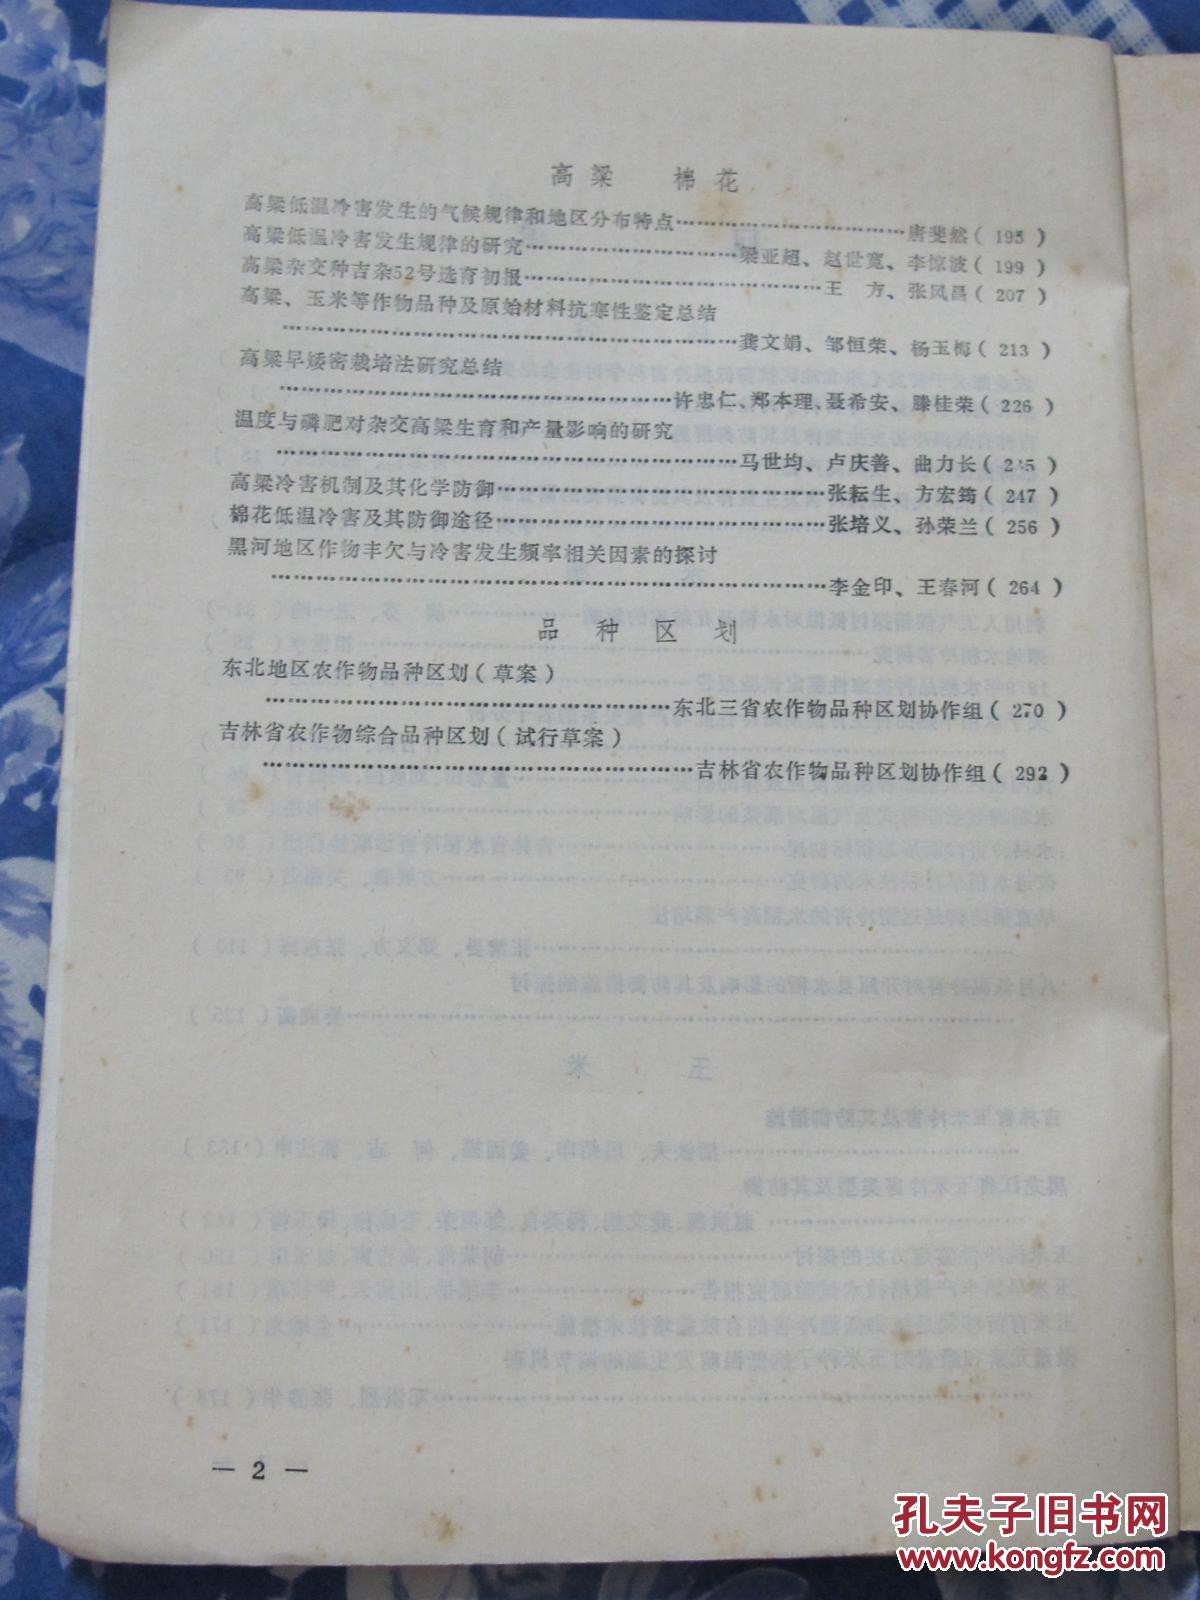 高粱 棉花
高粱低温冷害发生的气候规律和地区分布特点……………………………唐斐然(195)
高粱低温冷害发生规律的研究……………………………梁亚超、赵世宽、李惊波(199)
高粱杂交种吉杂52号选育初报……………………………王 方、张风昌(207)
高粱、玉米等作物品种及原始材料抗寒性鉴定总结
……………………………龚文娟、邹恒荣、杨玉梅(213)
高粱早矮密栽培法研究总结
……………………………许忠仁、郑本理、聂希安、滕佳荣(226)
温度与磷肥对杂交高粱生育和产量影响的研究
……………………………马世均、卢庆善、曲力长(2 5)
高粱冷害机制及其化学防御……………………………张耘生、方宏筠(247)
棉花低温冷害及其防御途径……………………………张培义、孙荣兰(256)
黑河地区作物丰欠与冷害发生频率相关因素的探讨
……………………………李金印、王春河(264)
品种区划
东北地区农作物品种区划(草案)
……………………………东北三省农作物品种区划协作组(270)
吉林省农作物综合品种区划(试行草案)
……………………………吉林省农作物品种区划协作组(292)
— 2 —
孔夫子旧书网
www.kongfz.com